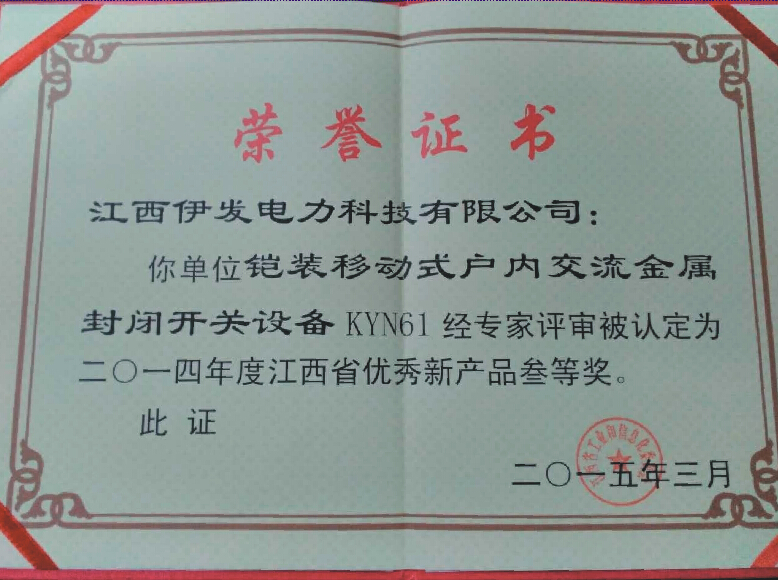 荣誉证书
江西伊发电力科技有限公司：
你单位铠装移动式户内交流金属
封闭开关设备 KYN61 经专家评审被认定为
二〇一四年度江西省优秀新产品叁等奖。
此证
二〇一五年三月